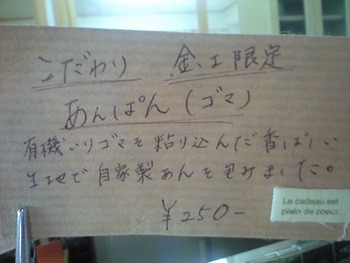 こだわり 金、土限定
あんぱん(ゴマ)
有機いりゴマを粘り込んだ香ばしい
生地で自家製あんを包みました。
¥250-
Le cadeau est
plein de coeur.